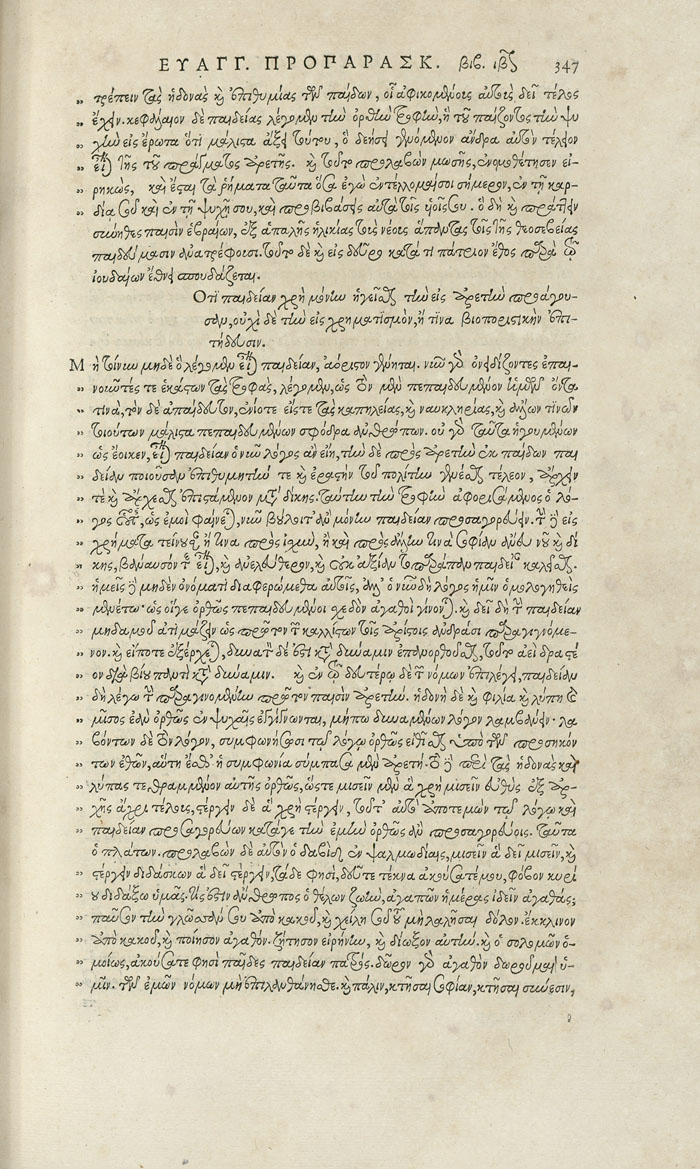 ΕΥΑΓΓ. ΠΡΟΠΑΡΑΣΚ. βιβ. ιβ 347
τρέπειν τὰς ἡδονὰς καὶ ἐπιθυμίας τῶν παίδων, οἷ ἀφικομένοις αὐτοῖς δεῖ τέλος
ἔχειν. κεφάλαιον δὲ παιδείας λέγομεν τὴν ὀρθὴν τροφὴν, ἣ τοῦ παίζοντος τὴν ψυ
χὴν εἰς ἔρωτα ὅτι μάλιστα ἄξει τούτου, ὃ δεήσει γενόμενον ἄνδρα αὐτὸν τέλειον
εἶναι τῆς τοῦ πράγματος ἀρετῆς. καὶ τοῦτο προλαβὼν μωσῆς, ἐνομοθέτησεν εἰ-
ρηκὼς, καὶ ἔσται τὰ ῥήματα ταῦτα ὅσα ἐγὼ ἐντέλλομαί σοι σήμερον, ἐν τῇ καρ-
δίᾳ σου καὶ ἐν τῇ ψυχῇ σου, καὶ προβιβάσεις αὐτὰ τοῖς υἱοῖς σου. ὃ δὴ καὶ πράττειν
σύνηθες παισὶν ἑβραίων, ἐξ ἁπαλῆς ἡλικίας τοὺς νέους ἅπαντας τοῖς τῆς θεοσεβείας
παιδεύμασιν ἀνατρέφουσι. τοῦτο δὲ καὶ εἰς δεῦρο κατά τι πάτριον ἔθος παρὰ τῷ
ἰουδαίων ἔθνει σπουδάζεται.
Ὅτι παιδείαν χρὴ μόνην ἡγεῖσθαι τὴν εἰς ἀρετὴν προάγου-
σαν, οὐχὶ δὲ τὴν εἰς χρηματισμὸν, ἤ τινα βιοποριστικὴν ἐπι-
τήδευσιν.
Μὴ τοίνυν μηδὲ ὃ λέγομεν εἶναι παιδείαν, ἀόριστον γένηται. νῦν γὰρ ὀνειδίζοντες ἐπαι-
νοῦντές τε ἑκάστων τὰς τροφὰς, λέγομεν, ὡς τὸν μὲν πεπαιδευμένον ἡμῶν ὄντα
τινὰ, τὸν δὲ ἀπαίδευτον, ἐνίοτε εἴς τε τὰς καπηλείας, καὶ ναυκληρίας, καὶ ἄλλων τινῶν
τοιούτων μάλιστα πεπαιδευμένων σφόδρα ἀνθρώπων. οὐ γὰρ ταῦτα ἡγουμένων
ὡς ἔοικεν, εἶναι παιδείαν ὁ νῦν λόγος ἂν εἴη, τὴν δὲ πρὸς ἀρετὴν ἐκ παίδων παι
δείαν ποιοῦσαν ἐπιθυμητήν τε καὶ ἐραστὴν τοῦ πολίτην γενέσθαι τέλεον, ἄρχειν
τε καὶ ἄρχεσθαι ἐπιστάμενον μετὰ δίκης. ταύτην τὴν τροφὴν ἀφορισάμενος ὁ λό-
γος οὗτος, ὡς ἐμοὶ φαίνεται, νῦν βούλοιτ' ἂν μόνην παιδείαν προσαγορεύειν. τὴν δὲ εἰς
χρήματα τείνουσαν, ἤ τινα πρὸς ἰσχὺν, ἢ καὶ πρὸς ἄλλην τινὰ σοφίαν ἄνευ νοῦ καὶ δί
κης, βάναυσόν τ' εἶναι, καὶ ἀνελεύθερον, καὶ οὐκ ἀξίαν τὸ παράπαν παιδείαν καλεῖσθαι.
ἡμεῖς δὲ μηδὲν ὀνόματι διαφερώμεθα αὐτοῖς, ἀλλ' ὁ νῦν δὴ λόγος ἡμῖν ὁμολογηθεὶς
μενέτω· ὡς οἵγε ὀρθῶς πεπαιδευμένοι σχεδὸν ἀγαθοὶ γίνονται. καὶ δεῖ δὴ τὴν παιδείαν
μηδαμοῦ ἀτιμάζειν ὡς πρῶτον τῶν καλλίστων τοῖς ἀρίστοις ἀνδράσι παραγιγνόμε-
νον. καὶ εἴποτε ἐξέρχεται, δυνατὸν δέ ἐστι κατὰ δύναμιν ἐπανορθοῦσθαι, τοῦτο ἀεὶ δραστέ
ον διὰ βίου παντὶ κατὰ δύναμιν. καὶ ἐν τῷ δευτέρῳ δὲ τῶν νόμων ἐπιλέγει, παιδείαν
δὴ λέγω τὴν παραγινομένην πρῶτον παισὶν ἀρετήν. ἡδονὴ δὲ καὶ φιλία καὶ λύπη καὶ
μῖσος ἐὰν ὀρθῶς ἐν ψυχαῖς ἐγγίνωνται, μήπω δυναμένων λόγον λαμβάνειν· λα
βόντων δὲ τὸν λόγον, συμφωνήσωσι τῷ λόγῳ ὀρθῶς εἰθίσθαι ὑπὸ τῶν προσηκόν
των ἐθῶν, αὕτη ἔσθ' ἡ συμφωνία σύμπασα μὲν ἀρετή. τὸ δὲ περὶ τὰς ἡδονὰς καὶ
λύπας τεθραμμένον αὐτῆς ὀρθῶς, ὥστε μισεῖν μὲν ἃ χρὴ μισεῖν εὐθὺς ἐξ ἀρ-
χῆς ἄχρι τέλους, στέργειν δὲ ἃ χρὴ στέργειν, τοῦτ' αὐτὸ ἀποτεμὼν τῷ λόγῳ καὶ
παιδείαν προσαγορεύων κατάγε τὴν ἐμὴν ὀρθῶς ἂν προσαγορεύοις. ταῦτα
ὁ πλάτων. προλαβὼν δὲ αὐτὸν ὁ δαβὶδ ἐν ψαλμωδίαις, μισεῖν ἃ δεῖ μισεῖν, καὶ
στέργειν διδάσκων ἃ δεῖ στέργειν, τάδε φησὶ, δεῦτε τέκνα ἀκούσατέ μου, φόβον κυρί
ου διδάξω ὑμᾶς. τίς ἐστιν ἄνθρωπος ὁ θέλων ζωὴν, ἀγαπῶν ἡμέρας ἰδεῖν ἀγαθάς;
παῦσον τὴν γλῶσσάν σου ἀπὸ κακοῦ, καὶ χείλη σου τοῦ μὴ λαλῆσαι δόλον. ἔκκλινον
ἀπὸ κακοῦ, καὶ ποίησον ἀγαθόν. ζήτησον εἰρήνην, καὶ δίωξον αὐτήν. καὶ ὁ σολομῶν ὁ-
μοίως, ἀκούσατε φησὶ παῖδες παιδείαν πατρός. δῶρον γὰρ ἀγαθὸν δωροῦμαι ὑ-
μῖν. τῶν ἐμῶν νόμων μὴ ἐπιλανθάνησθε. καὶ πάλιν, κτῆσαι σοφίαν, κτῆσαι σύνεσιν,